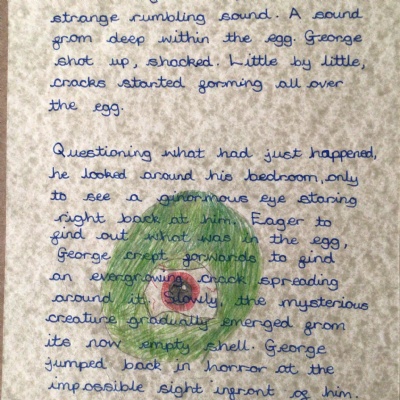 strange rumbling sound. A sound
from deep within the egg. George
shot up, shocked. Little by little,
cracks started forming all over
the egg.
Questioning what had just happened,
he looked around his bedroom, only
to see a ginormous eye staring
right back at him. Eager to
find out what was in the egg,
George crept forwards to find
an evergrowing crack spreading
around it. Slowly, the mysterious
creature gradually emerged from
its now empty shell. George
jumped back in horror at the
impossible sight infront of him.